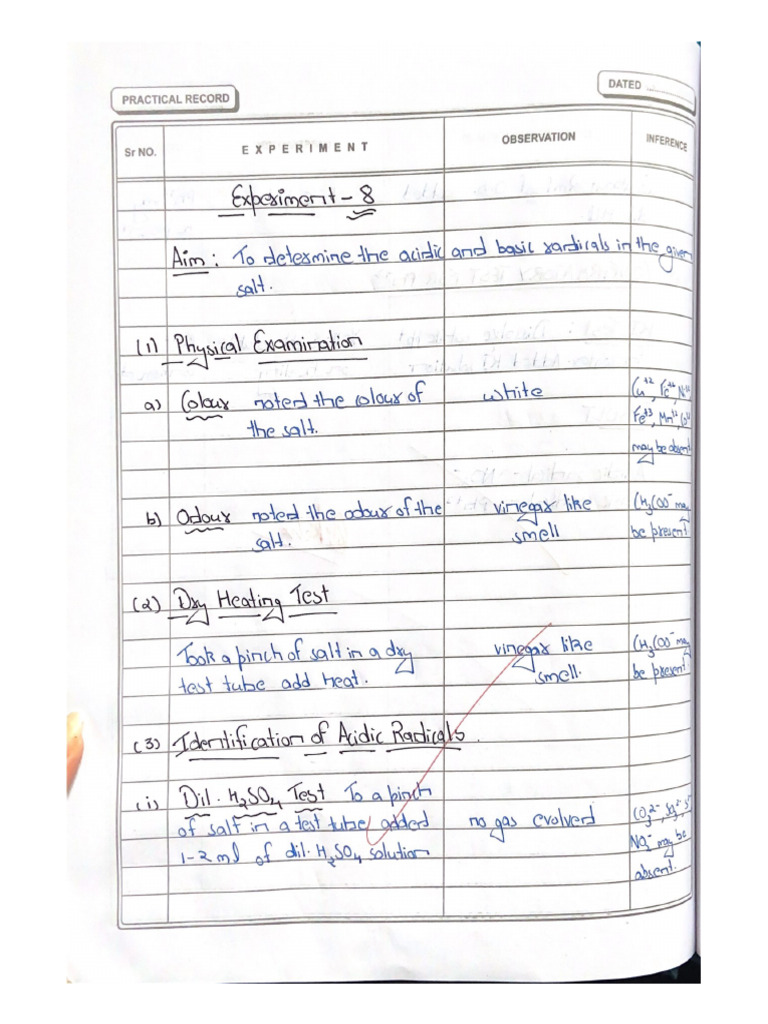 PRACTICAL RECORD
DATED
Sr NO.
EXPERIMENT
OBSERVATION
INFERENCE
Experiment - 8
Aim : To determine the acidic and basic radicals in the given
salt.
(1) Physical Examination
a) Colour noted the colour of white Cu+2, Fe+2,
the salt. Fe+3, Mn+2,
may be absent
b) Odour noted the odour of the vinegar like CH3COO- may
salt. smell be present
(2) Dry Heating Test
Took a pinch of salt in a dry vinegar like CH3COO- may
test tube add heat. smell. be present
(3) Identification of Acidic Radicals.
(i) Dil. H2SO4 Test To a pinch
of salt in a test tube, added no gas evolved CO3 2-,
1-2 ml of dil. H2SO4 solution NO2- may be
absent.